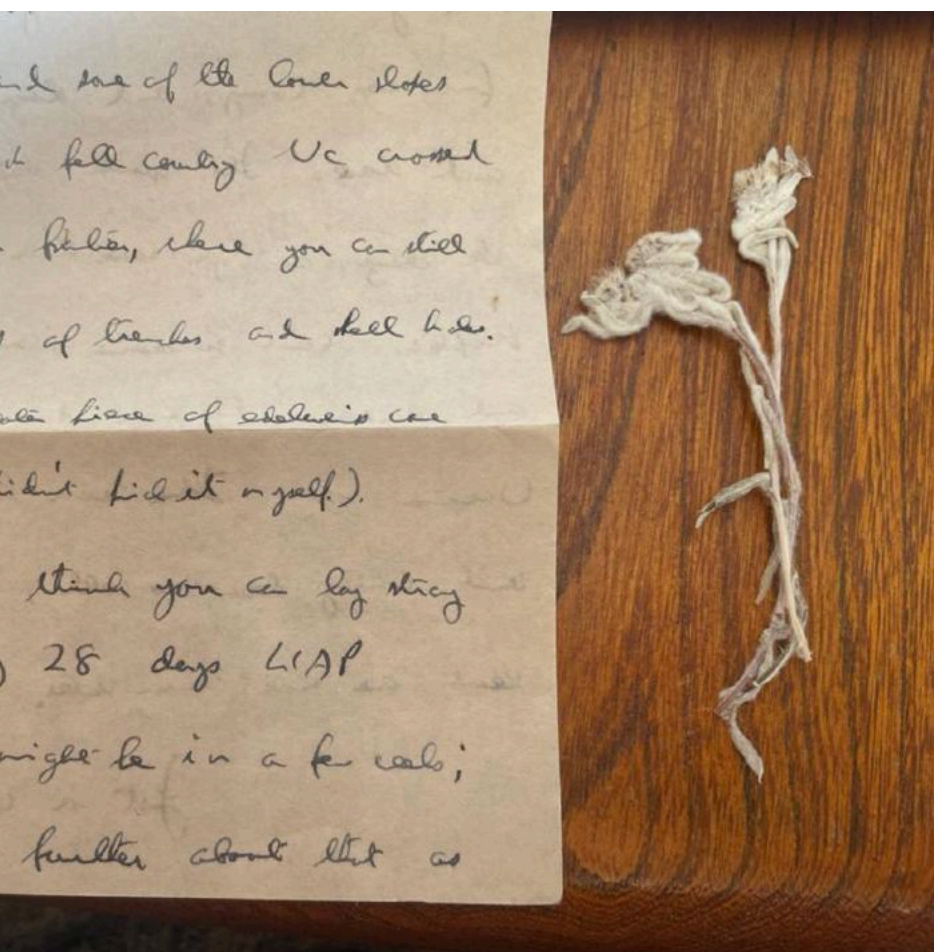 and some of the lower slopes
fell country We crossed
frontier, where you can still
of trenches and shell holes.
piece of edelweiss came
didn't pick it myself.).
think you can lay stray
28 days LIAP
might be in a few weeks;
further about that as